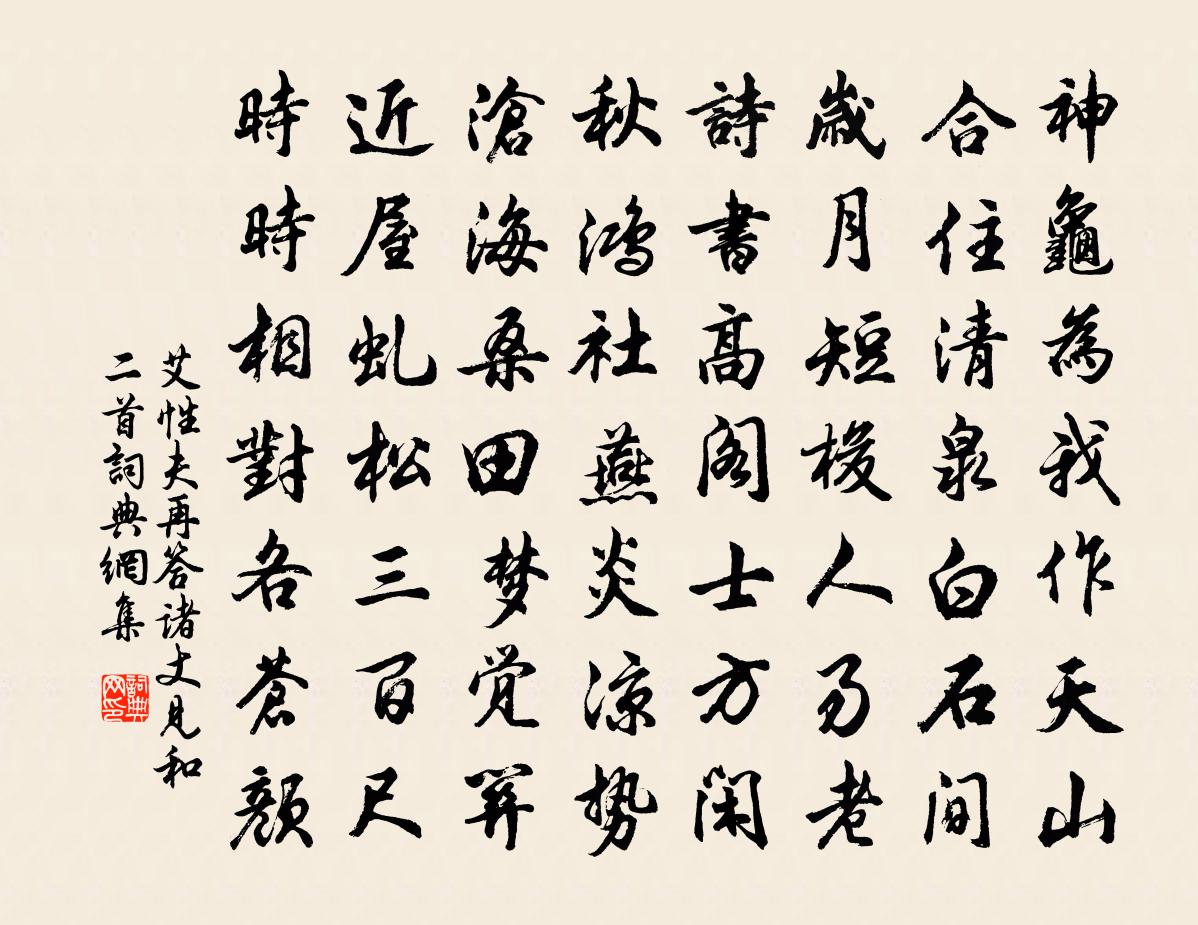 神龜為我作天山
合住清泉白石間
歲月短梭人易老
詩書高閣士方閑
秋鴻社燕炎涼勢
滄海桑田梦覺關
近屋虬松三百尺
時時相對各蒼顏
艾性夫再答諸丈見和
二首詞典網集
詞典
网印